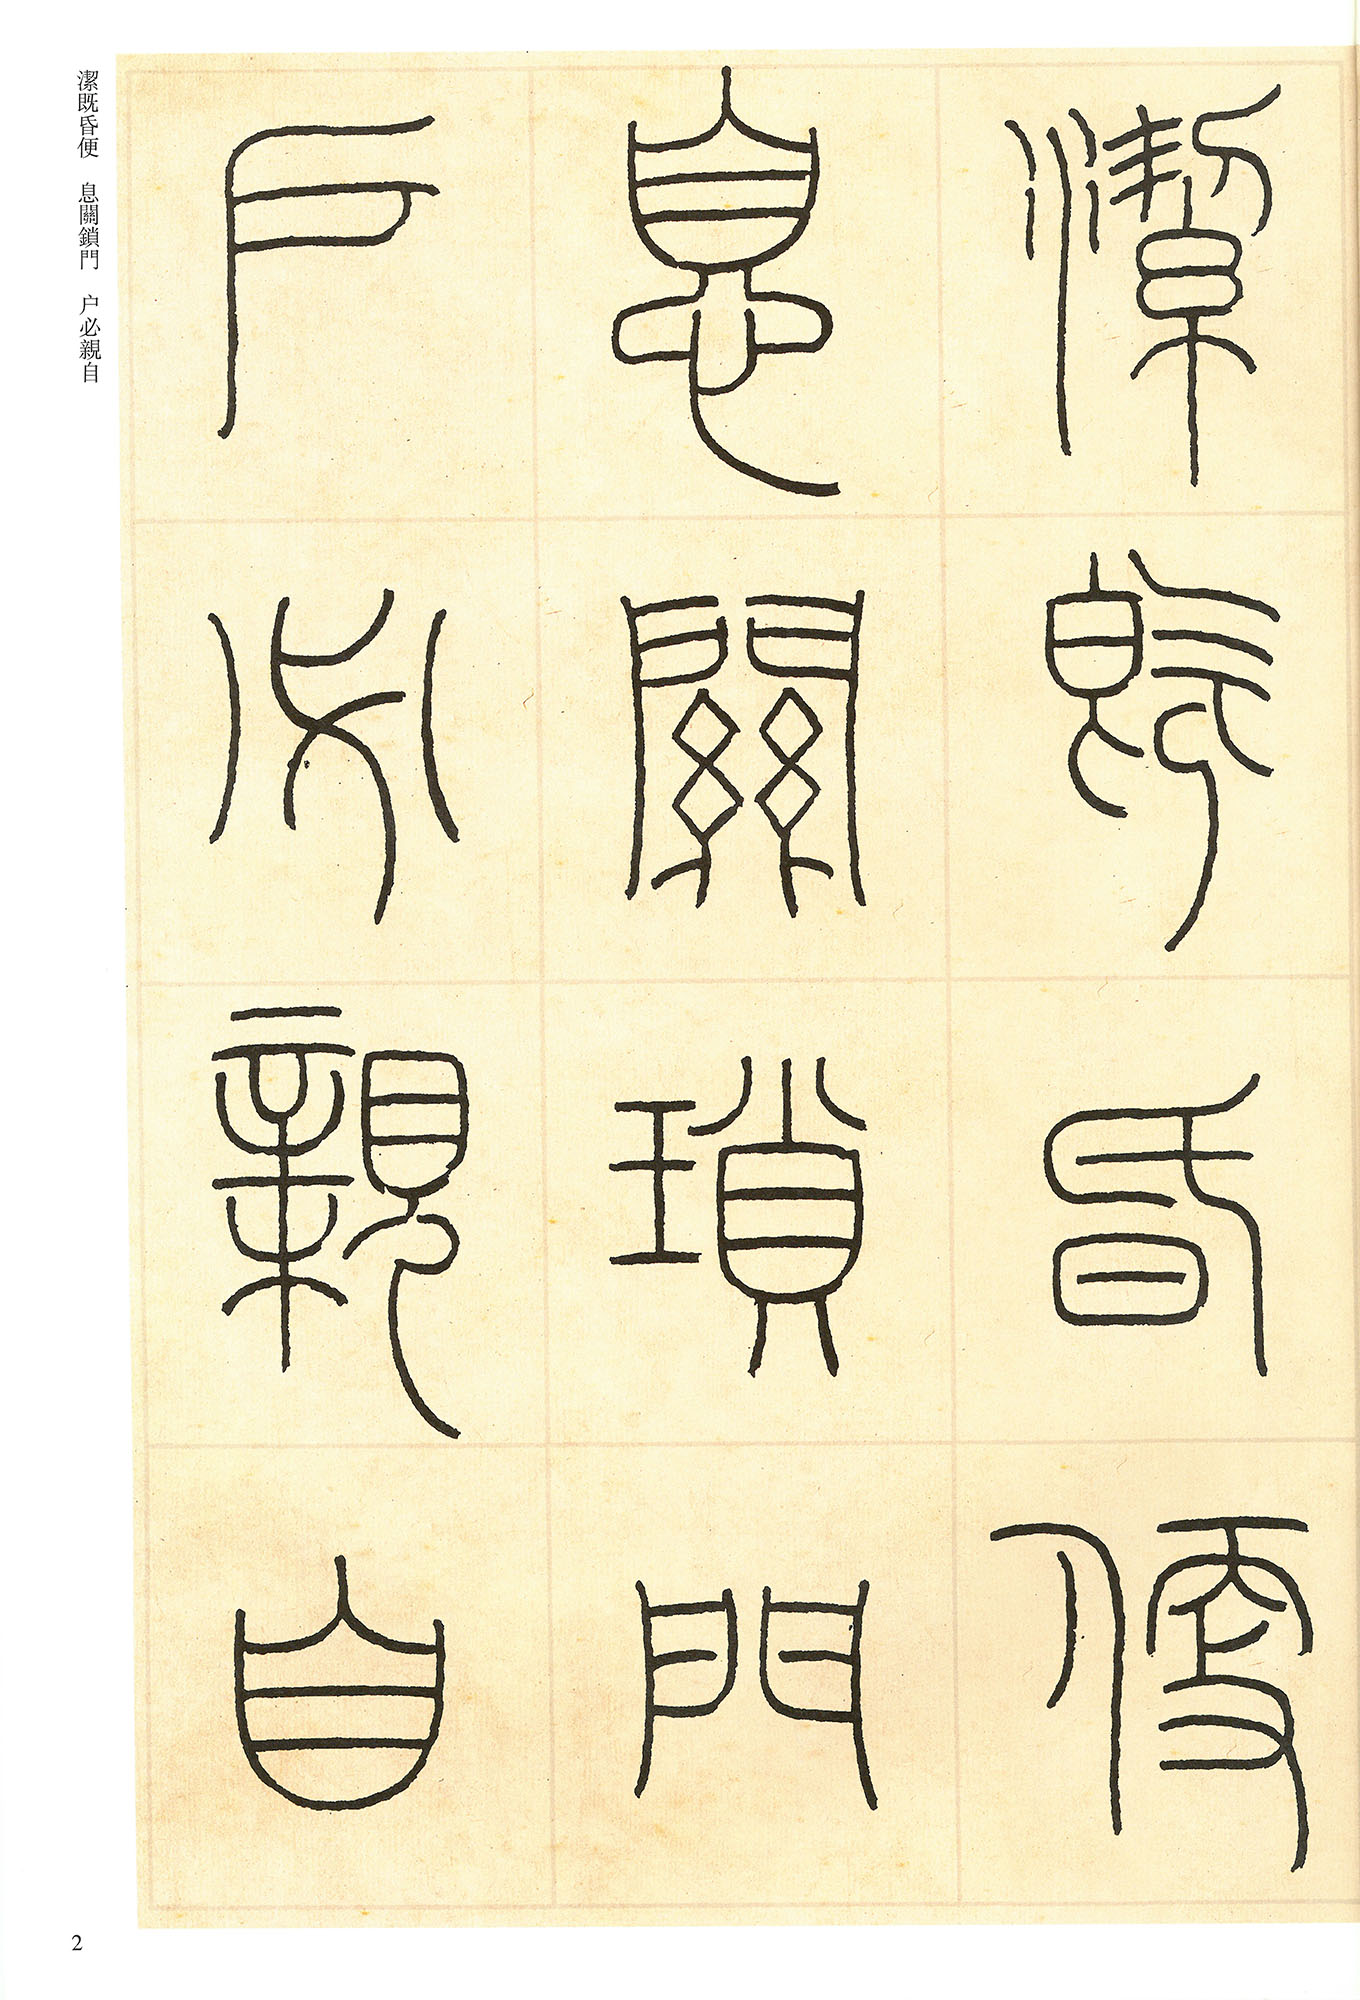 潔既昏便
息關瑣門
户必親自
潔既昏便　息關鎖門　户必親自
2